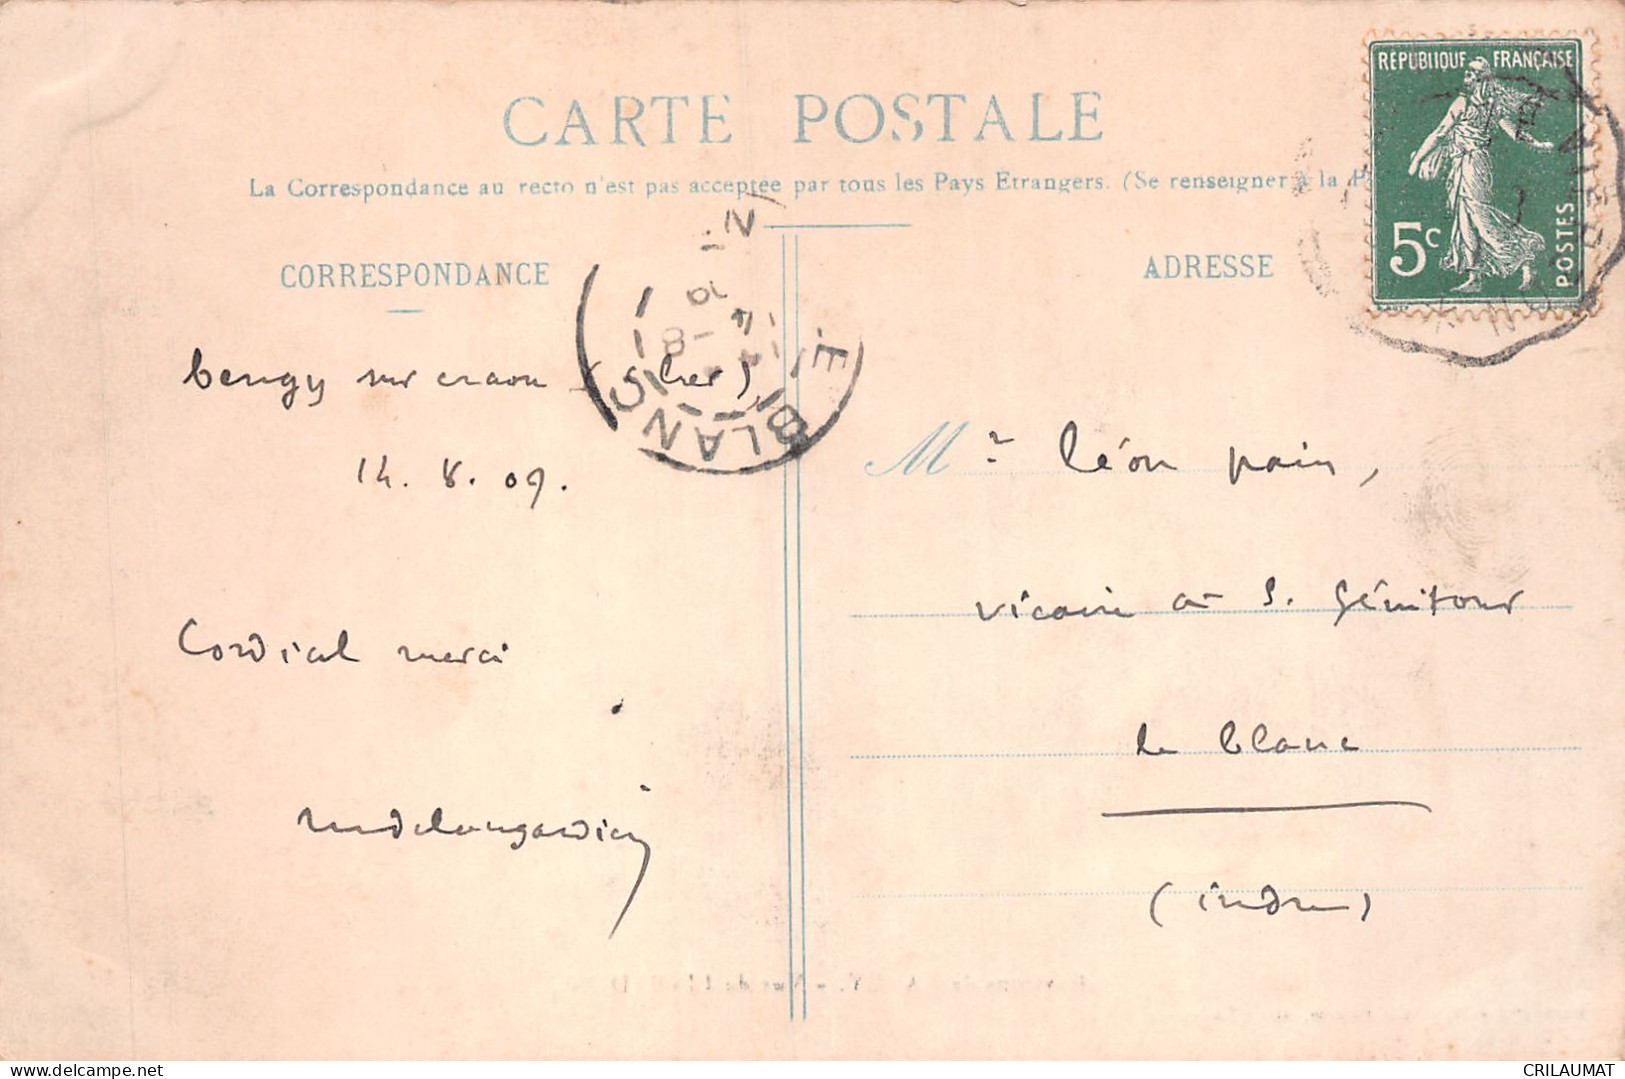 CARTE POSTALE
La Correspondance au recto n'est pas acceptée par tous les Pays Etrangers. (Se renseigner à la P
CORRESPONDANCE
ADRESSE
RÉPUBLIQUE FRANÇAISE
5c
POSTES
LE BLANC
bengy sur craon (cher),
14. 8. 09.
Cordial merci
Mr léon pain,
vicaire à S. Génitour
le blanc
(indre)
CRILAUMAT